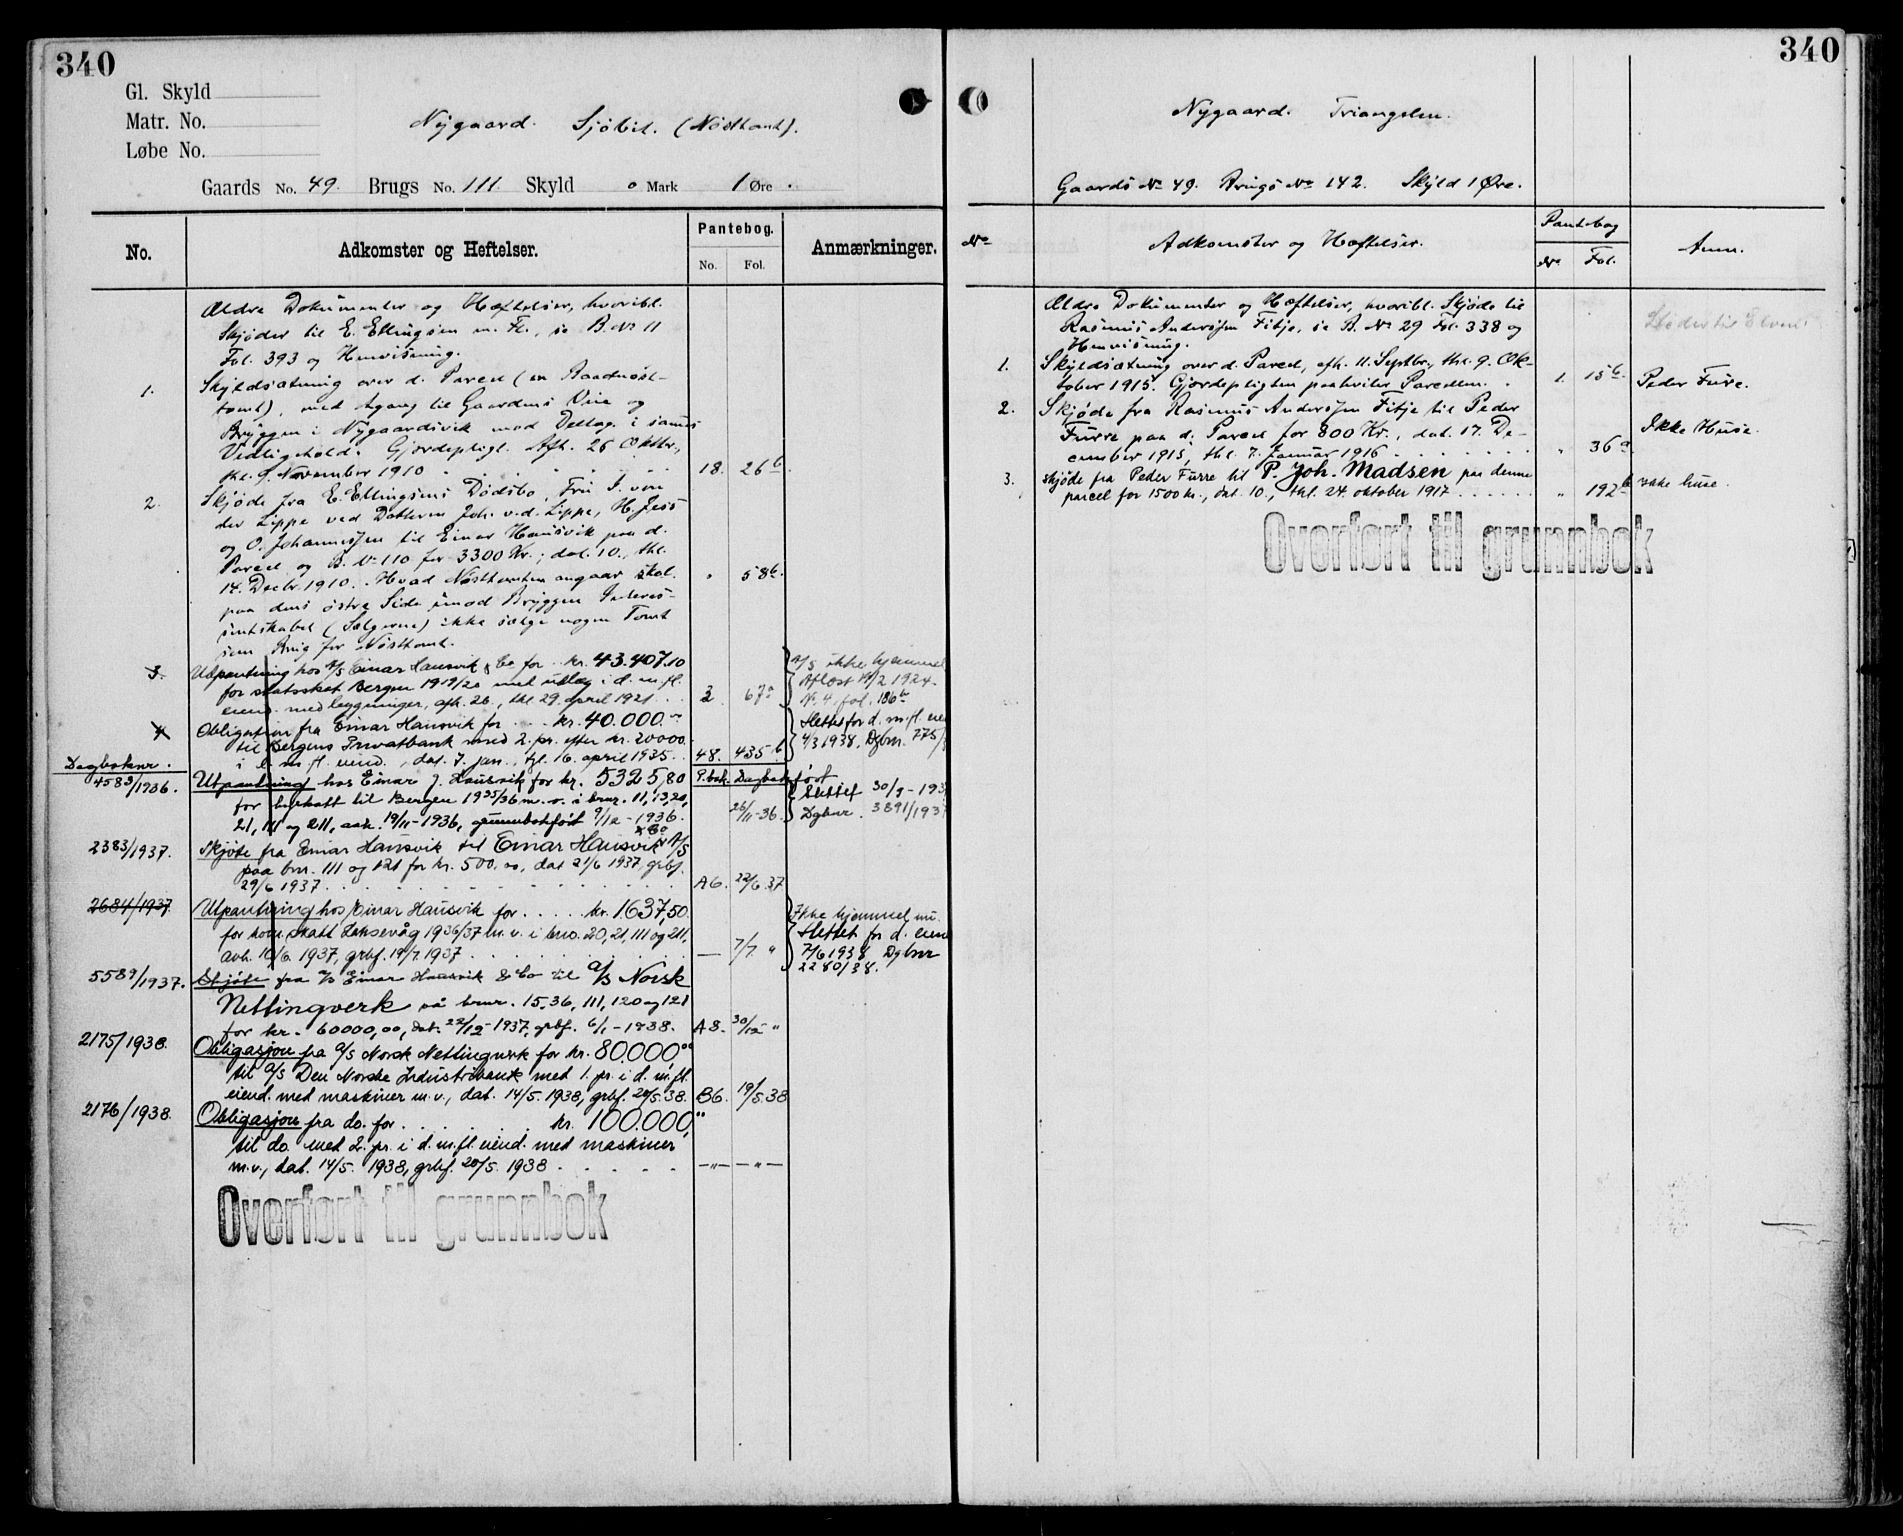 340
Gl. Skyld
Matr. No.
Løbe No.
Nygaard. Sjøbit. (Nösttomt).
Gaards No. 49. Brugs No. 111 Skyld 0 Mark 1 Øre.
No. Adkomster og Heftelser. Pantebog. Anmærkninger.
No. Fol.
Ældre Dokumenter og Hæftelser, hvoribl.
Skjøder til E. Ellingsen m. Fl., se B. No 11
Fol. 393 og Henvisning.
1. Skyldsætning over d. Parcel (en Baadnöst-
tomt), med Agang til Gaardens Veie og
Bryggen i Nygaardsvik mod Deltag. i sammes
Vedligehold. Gjerdepligt. Afh. 26 Oktbr.,
thl. 9. November 1910 18. 26b
2. Skjøde fra E. Ellingsens Dødsbo, Fru I. von
der Lippe ved Datteren Joh. v. d. Lippe, H. Jess
og O. Johannessen til Einar Hausvik paa d.
Parcel og B. No 110 for 3300 Kr.; dat. 10., thl.
14. Decbr. 1910. Hvad Nösttomten angaar skal " 58b.
paa dens østre Side imod Bryggen Interes-
sentskabet (Sælgerne) ikke sælge nogen Tomt
som Brug for Nösttomt.
3. Utpantning hos A/S Einar Hausvik & Co for kr. 43.407.10
for statsskat Bergen 1919/20 med utlæg i d. m. fl.
eiend. med bygninger, afh. 26., thl 29. april 1921 2 67a
A/S ikke hjemmel
Avløst 19/2 1924.
No 4 fol. 186b
4. Obligation fra Einar Hausvik for kr. 40.000.00
til Bergens Privatbank med 2. pr. efter kr. 20000.
i d. m. fl. eiend., dat. 7. jan., tgl. 16. april 1935. 48. 435b
Slettet for d. m. fl. eien
4/3 1938, Dgbnr. 775/3
Dagboknr. P.bok. Dagbokført
4583/1936. Utpantning hos Einar J. Hausvik for kr. 5325,80
for byskatt til Bergen 1935/36 m. v. i brnr. 11, 13, 20,
21, 111 og 211, avh. 19/11-1936, grunnbokført 9/12-1936. 26/11-36.
Slettet 30/9-193
Dgbnr. 3891/1937
2383/1937. Skjøte fra Einar Hausvik til Einar Hausvik & Co A/S
paa bnr. 111 og 121 for kr. 500.00, dat 21/6 1937, grbf.
29/6 1937 A6. 22/6 37
2684/1937. Utpantning hos Einar Hausvik for kr. 1637,50.
for kom. skatt Laksevåg 1936/37 m. v. i brno. 20, 21, 111 og 211,
avh. 10/6. 1937, grbf. 19/7 1937 — 7/7 "
Ikke hjemmel nu.
Slettet for d. eien
7/6 1938 Dgbnr
2280/38.
5589/1937. Skjøte fra A/S Einar Hausvik & Co til A/S Norsk
Nettingverk på brnr. 15, 36, 111, 120 og 121
for kr. 60000,00, dat. 22/12-1937, grbf. 6/1-1938. A8. 30/12 "
2175/1938. Obligasjon fra A/S Norsk Nettingverk for kr. 80.000,00
til A/S Den Norske Industribank med 1. pr. i d. m. fl.
eiend. med maskiner m. v., dat. 14/5. 1938, grbf. 20/5. 38. B6. 19/5. 38
2176/1938. Obligasjon fra do. for kr. 100.000,00
til do. med 2. pr. i d. m. fl. eiend. med maskiner
m. v., dat. 14/5. 1938, grbf. 20/5. 1938 —"— —"—
Overført til grunnbok
340
Nygaard. Triangelen.
Gaards No 49. Brugs No 142. Skyld 1 Øre.
No Adkomster og Hæftelser. Pantebog Anm.
No Fol.
Ældre Dokumenter og Hæftelser, hvoribl. Skjøde til
Rasmus Anderssen Fitje, se B. No 29 Fol. 338 og
Henvisning.
1. Skyldsætning over d. Parcel, afh. 11. Septbr., thl. 9. Ok-
tober 1915. Gjerdepligten paahviler Parcellen. 1. 15b. Peder Furre.
2. Skjøde fra Rasmus Anderssen Fitje til Peder
Furre paa d. Parcel for 800 Kr., dat. 17. De-
cember 1915, thl. 7. Januar 1916 " 36a Ikke Huse.
3. skjøde fra Peder Furre til P. Joh. Madsen paa denne
parcel for 1500 kr., dat. 10., thl. 24. oktober 1917 " 192b ikke huse.
Overført til grunnbok